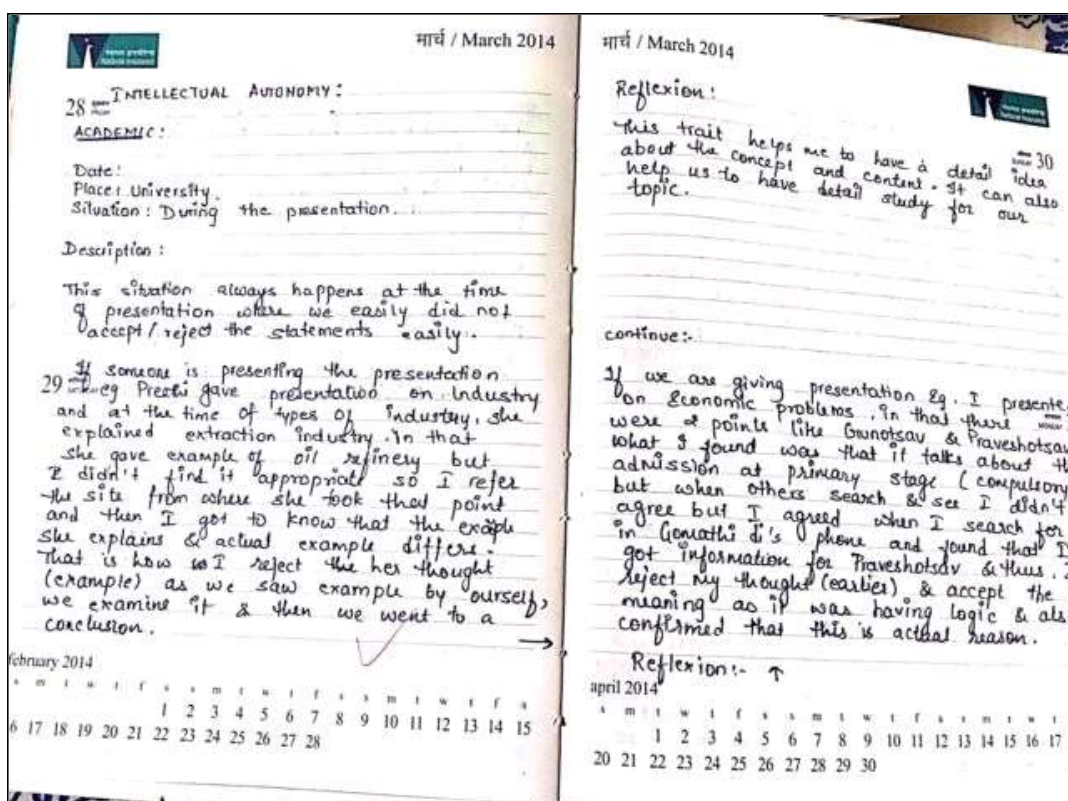 मार्च / March 2014
28 INTELLECTUAL AUTONOMY:
ACADEMIC:
Date:
Place: University.
Situation: During the presentation.
Description:
This situation always happens at the time
of presentation where we easily did not
accept/reject the statements easily.
If someone is presenting the presentation
29 eg Preeti gave presentation on Industry
and at the time of types of industry, she
explained extraction industry. In that
she gave example of oil refinery but
I didn't find it appropriate so I refer
the site from where she took that point
and then I got to know that the example
she explains & actual example differs.
That is how I reject her thought
(example) as we saw example by ourself,
we examine it & then we went to a
conclusion. →
february 2014
s m t w t f s s m t w t f s s m t w t f s
1 2 3 4 5 6 7 8 9 10 11 12 13 14 15
6 17 18 19 20 21 22 23 24 25 26 27 28
मार्च / March 2014
Reflexion:
30
This trait helps me to have a detail idea
about the concept and content. It can also
help us to have detail study for our
topic.
continue:-
If we are giving presentation Eg. I presente
on Economic problems. in that there
were 2 points like Gunotsav & Praveshotsav
what I found was that it talks about th
admission at primary stage (compulsory
but when others search & see I didn't
agree but I agreed when I search for
in Gomathi di's phone and found that I
got information for Praveshotsav & thus.
reject my thought (earlier) & accept the
meaning as it was having logic & als
confirmed that this is actual reason.
Reflexion:- ↑
april 2014
s m t w t f s s m t w t f s s m t
1 2 3 4 5 6 7 8 9 10 11 12 13 14 15 16 17
20 21 22 23 24 25 26 27 28 29 30